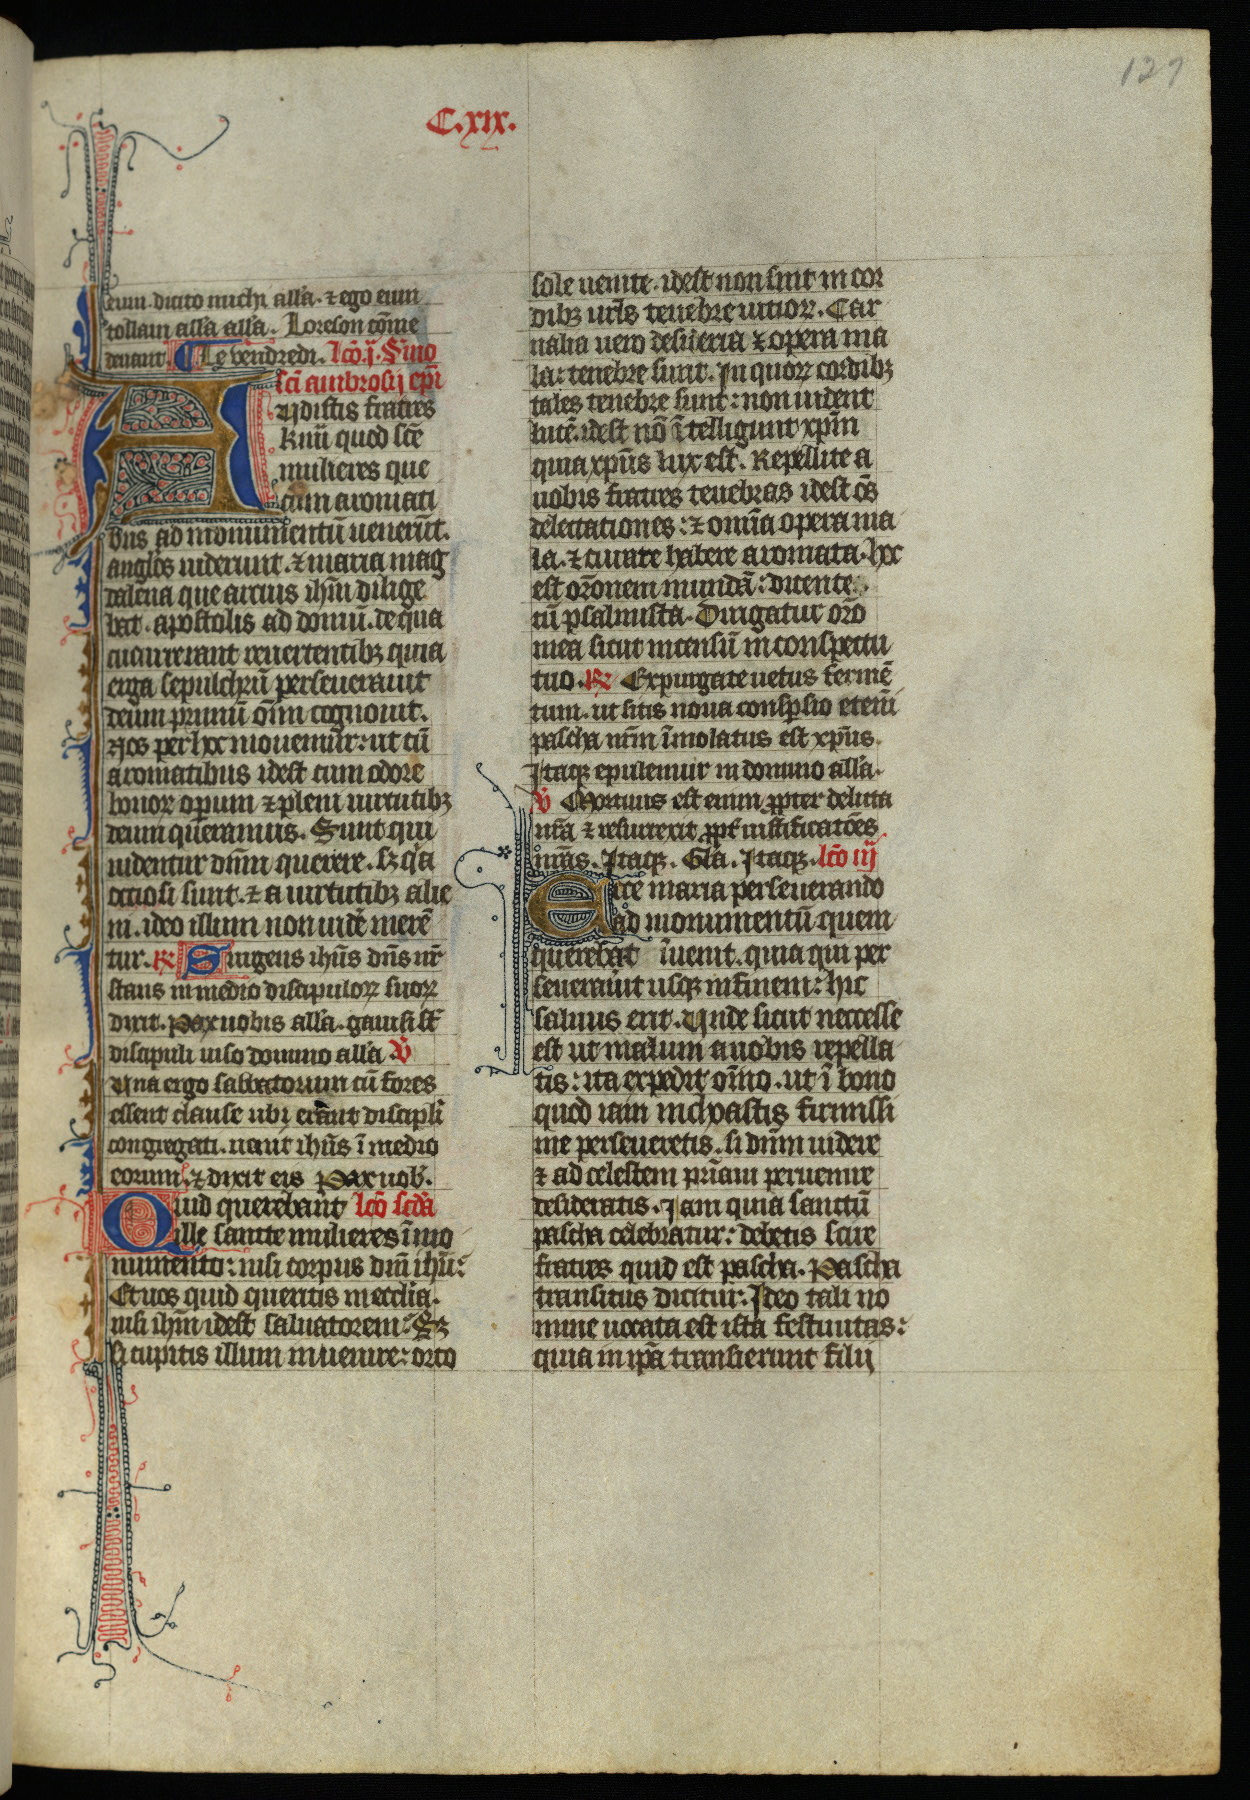 127
C.xix.
eum. dicito michi alla. ⁊ ego eum
tollam alla alla. Loreson cõme
deuant. ¶ Le vendredi. lcõ .j. Smo
sci ambrosij epi
Audistis fratres
k̃mi quod scẽ
mulieres que
cum aromati
bus ad monumentũ uenerũt.
anglos uiderunt. ⁊ maria mag
dalena que arcius ihm dilige
bat. apostolis ad domũ. de qua
cucurrerant reuertentibꝫ quia
erga sepulchrũ perseuerauit
deum primũ oĩm cognouit.
Nos per hoc monemur: ut cũ
aromatibus idest cum odore
bonoꝝ operum ⁊ pleni uirtutibꝫ
deum queramus. Sunt qui
uidentur dnm querere. sꝫ qa
occiosi sunt. ⁊ a uirtutibꝫ alie
ni. ideo illum non uidẽ merẽ
tur. ℞ Surgens ihũs dñs nr̃
stans in medio discipuloꝝ suoꝝ
dixit. Pax uobis alla. gauisi st̃
discipuli uiso domino alla ℣
Una ergo sabbatorum cũ fores
essent clause ubi erant discipli
congregati. uenit ihũs ĩ medio
eorum ⁊ dixit eis Pax uob̃.
Quid querebant lcõ scdã
ille sancte mulieres ĩ mo
numento: nisi corpus dnĩ ihũ:
Et uos quid queritis in ecclia.
nisi ihm idest saluatorem: Sꝫ
si cupitis illum inuenire: orto
sole uenite. idest non sint in cor
dibꝫ uris tenebre uitioꝝ. Car
nalia uero desideria ⁊ opera ma
la: tenebre sunt. In quoꝝ cordibꝫ
tales tenebre sunt: non uident
lucẽ. idest nõ ĩtelligunt xpm
quia xpũs lux est. Repellite a
uobis fratres tenebras idest õs
delectationes: ⁊ omĩa opera ma
la. ⁊ curate habere aromata. hoc
est orõnem mundã: dicente
cũ psalmista. Dirigatur orõ
mea sicut incensũ in conspectu
tuo. ℞ Expurgate uetus fermẽ
tum. ut sitis noua conspsio etenĩ
pascha nrm ĩmolatus est xpũs.
Itaqꝫ epulemur in domino alla.
℣ Mortuus est enim ꝓpter delicta
nrã ⁊ resurrexit ꝓpt̃ iustificatões
nrãs. Itaqꝫ. Glã. Itaqꝫ. lcõ iij
Ecce maria perseuerando
ad monumentũ quem
querebat ĩuenit. quia qui per
seuerauit usqꝫ in finem: hic
saluus erit. Unde sicut neccesse
est ut malum a uobis repella
tis: ita expedit oĩno. ut ĩ bono
quod iam inchoastis firmissi
me perseueretis. si dnm uidere
⁊ ad celestem priam peruenire
desideratis. Iam quia sanctũ
pascha celebratur: debetis scire
fratres quid est pascha. Pascha
transitus dicitur: Ideo tali no
mine uocata est ista festiuitas:
quia in ipa transierunt filij